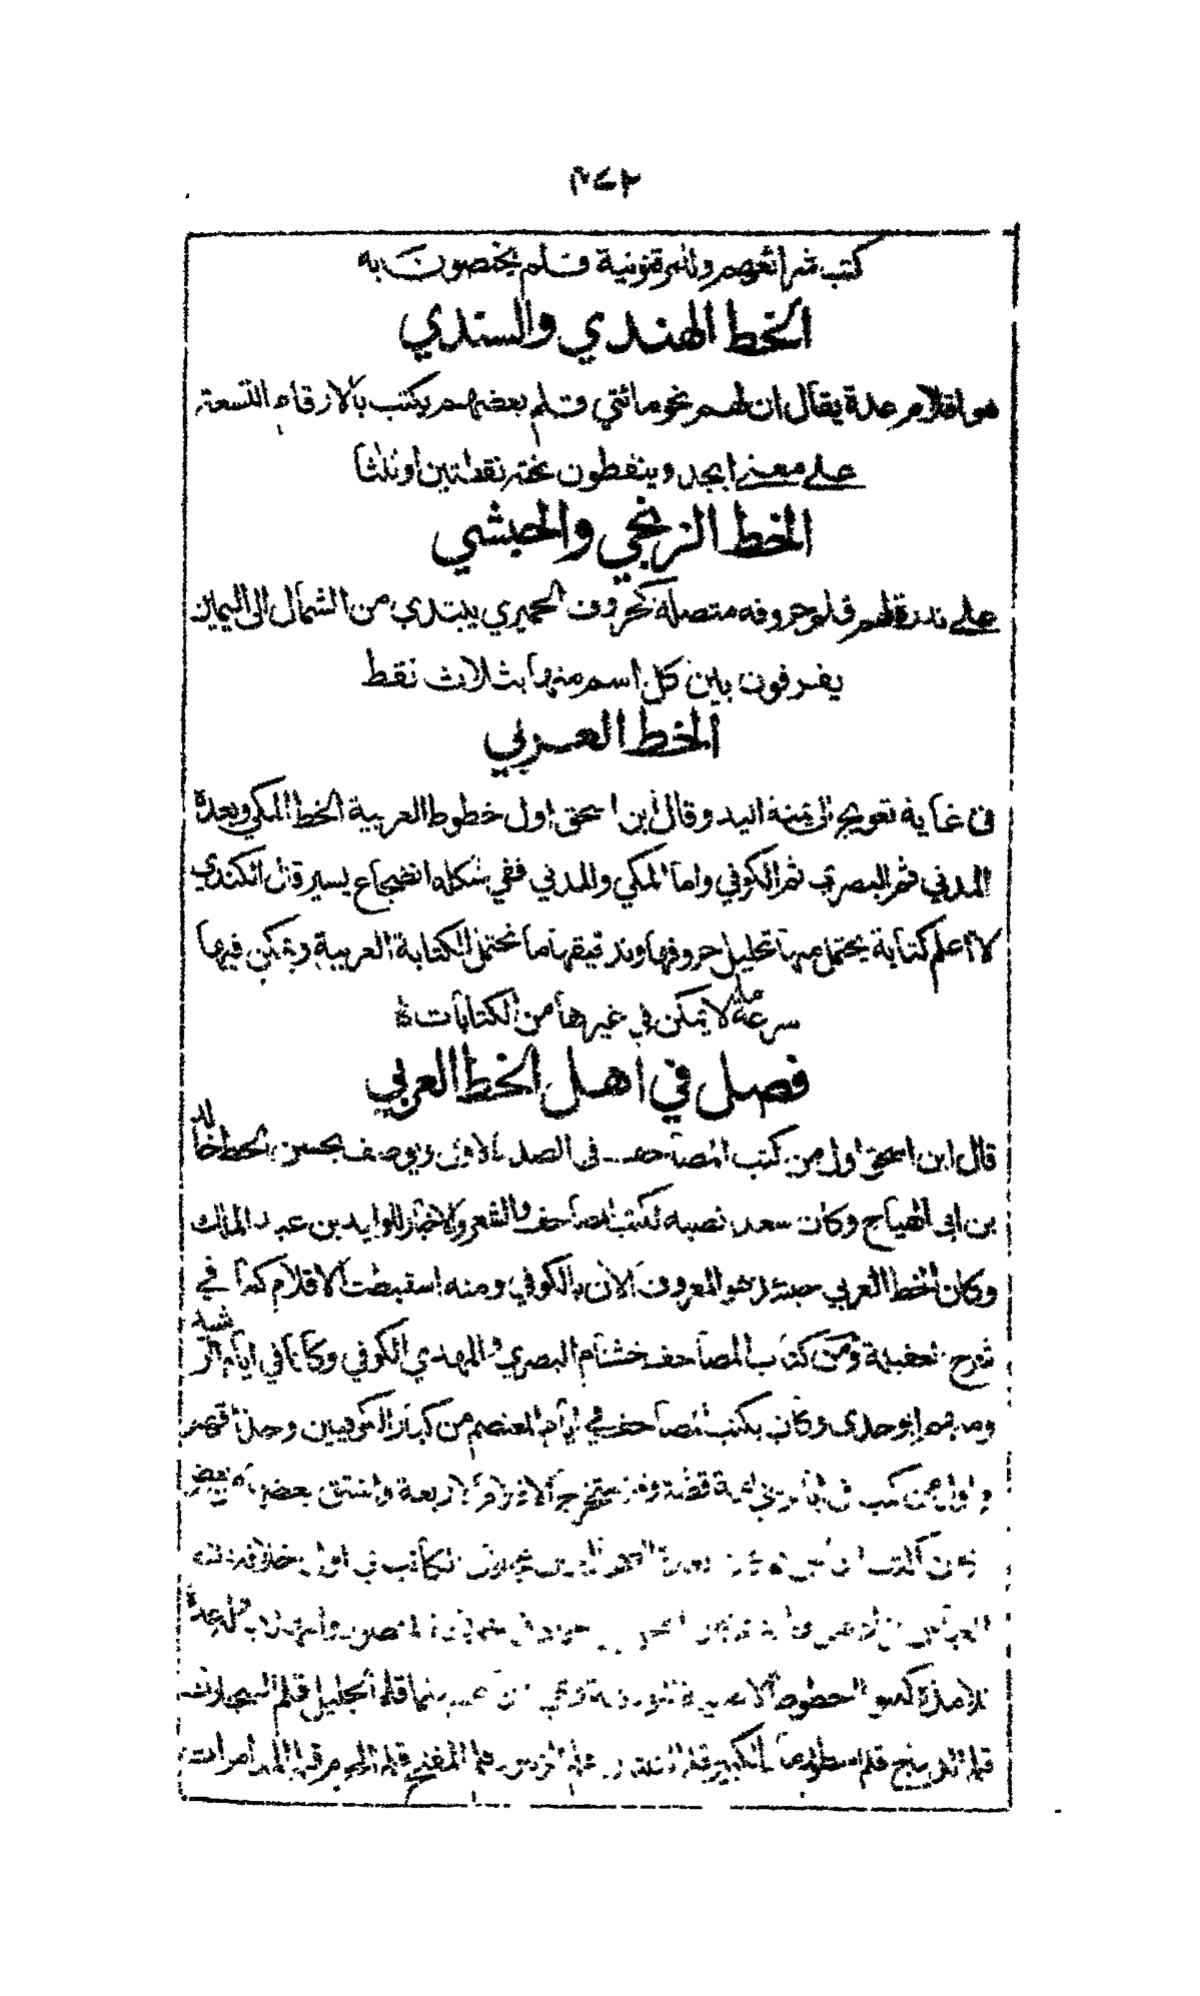 ٢٧٣
كتب شرائعهم وللمرقونية قلم يختصون به
الخط الهندي والسندي
هو اقلام عدة يقال ان لهم نحو مائتي قلم بعضهم يكتب بالارقام التسعة
على معنى ابجد وينقطون تحته نقطتين او ثلثا
الخط الزنجي والحبشي
على ندرة لهم قلم حروفه متصلة كحروف الحميري يبتدي من الشمال الى اليمين
يفرقون بين كل اسم منها بثلاث نقط
الخط العربي
في غاية تعويج الى يمنة اليد وقال ابن اسحق اول خطوط العربية الخط المكي وبعده
المدني ثم البصري ثم الكوفي واما المكي والمدني ففي شكله انضجاع يسير قال الكندي
لا اعلم كتابة يحتمل منها تحليل حروفها وتدقيقها ما تحتمل الكتابة العربية ويمكن فيها
سرعة ما لا يمكن في غيرها من الكتابات
فصل في اهل الخط العربي
قال ابن اسحق اول من كتب المصاحف في الصدر الاول ويوصف بحسن الخط خالد
بن ابي الهياج وكان سعد نصبه لكتب المصاحف والشعر والاخبار للوليد بن عبد الملك
وكان الخط العربي حينئذ هو المعروف الان بالكوفي ومنه استنبطت الاقلام كما في
شرح العقيلة ومن كتاب المصاحف خشنام البصري والمهدي الكوفي وكانا في ايام الرشيد
ومنهم ابو حدى وكان يكتب المصاحف في ايام المعتصم من كبار الكوفيين وحذاقهم
واول من كتب في ايام بني امية قطبة وقد استخرج الاقلام الاربعة واشتق بعضها من بعض
وكان اكتب الناس ثم كان بعده الضحاك بن عجلان الكاتب في اول خلافة بني
العباس
تلامذة كتبوا الخطوط الاصلية الموزونة وهي اثنا عشر قلما قلم الجليل قلم السجلات
قلم الديباج قلم اسطومار الكبير قلم الثلثين قلم الزنبور قلم المفتح قلم الحرم قلم المدامرات